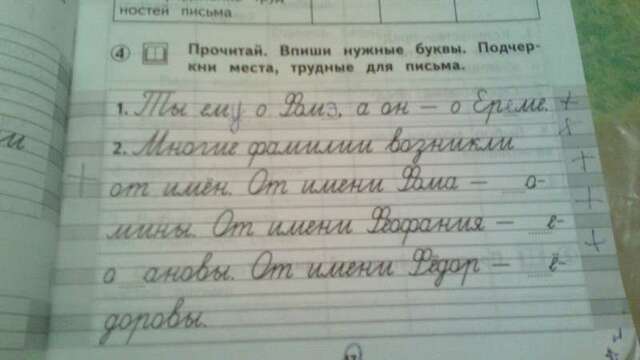 ностей письма
4 Прочитай. Впиши нужные буквы. Подчер-
кни места, трудные для письма.
1. Ты ему о Фоме, а он — о Ереме. +
2. Многие фамилии возникли
+ от имён. От имени Фома — _ о- +
мины. От имени Феофания — _ е- +
о _ ановы. От имени Фёдор — _ ё- +
доровы.